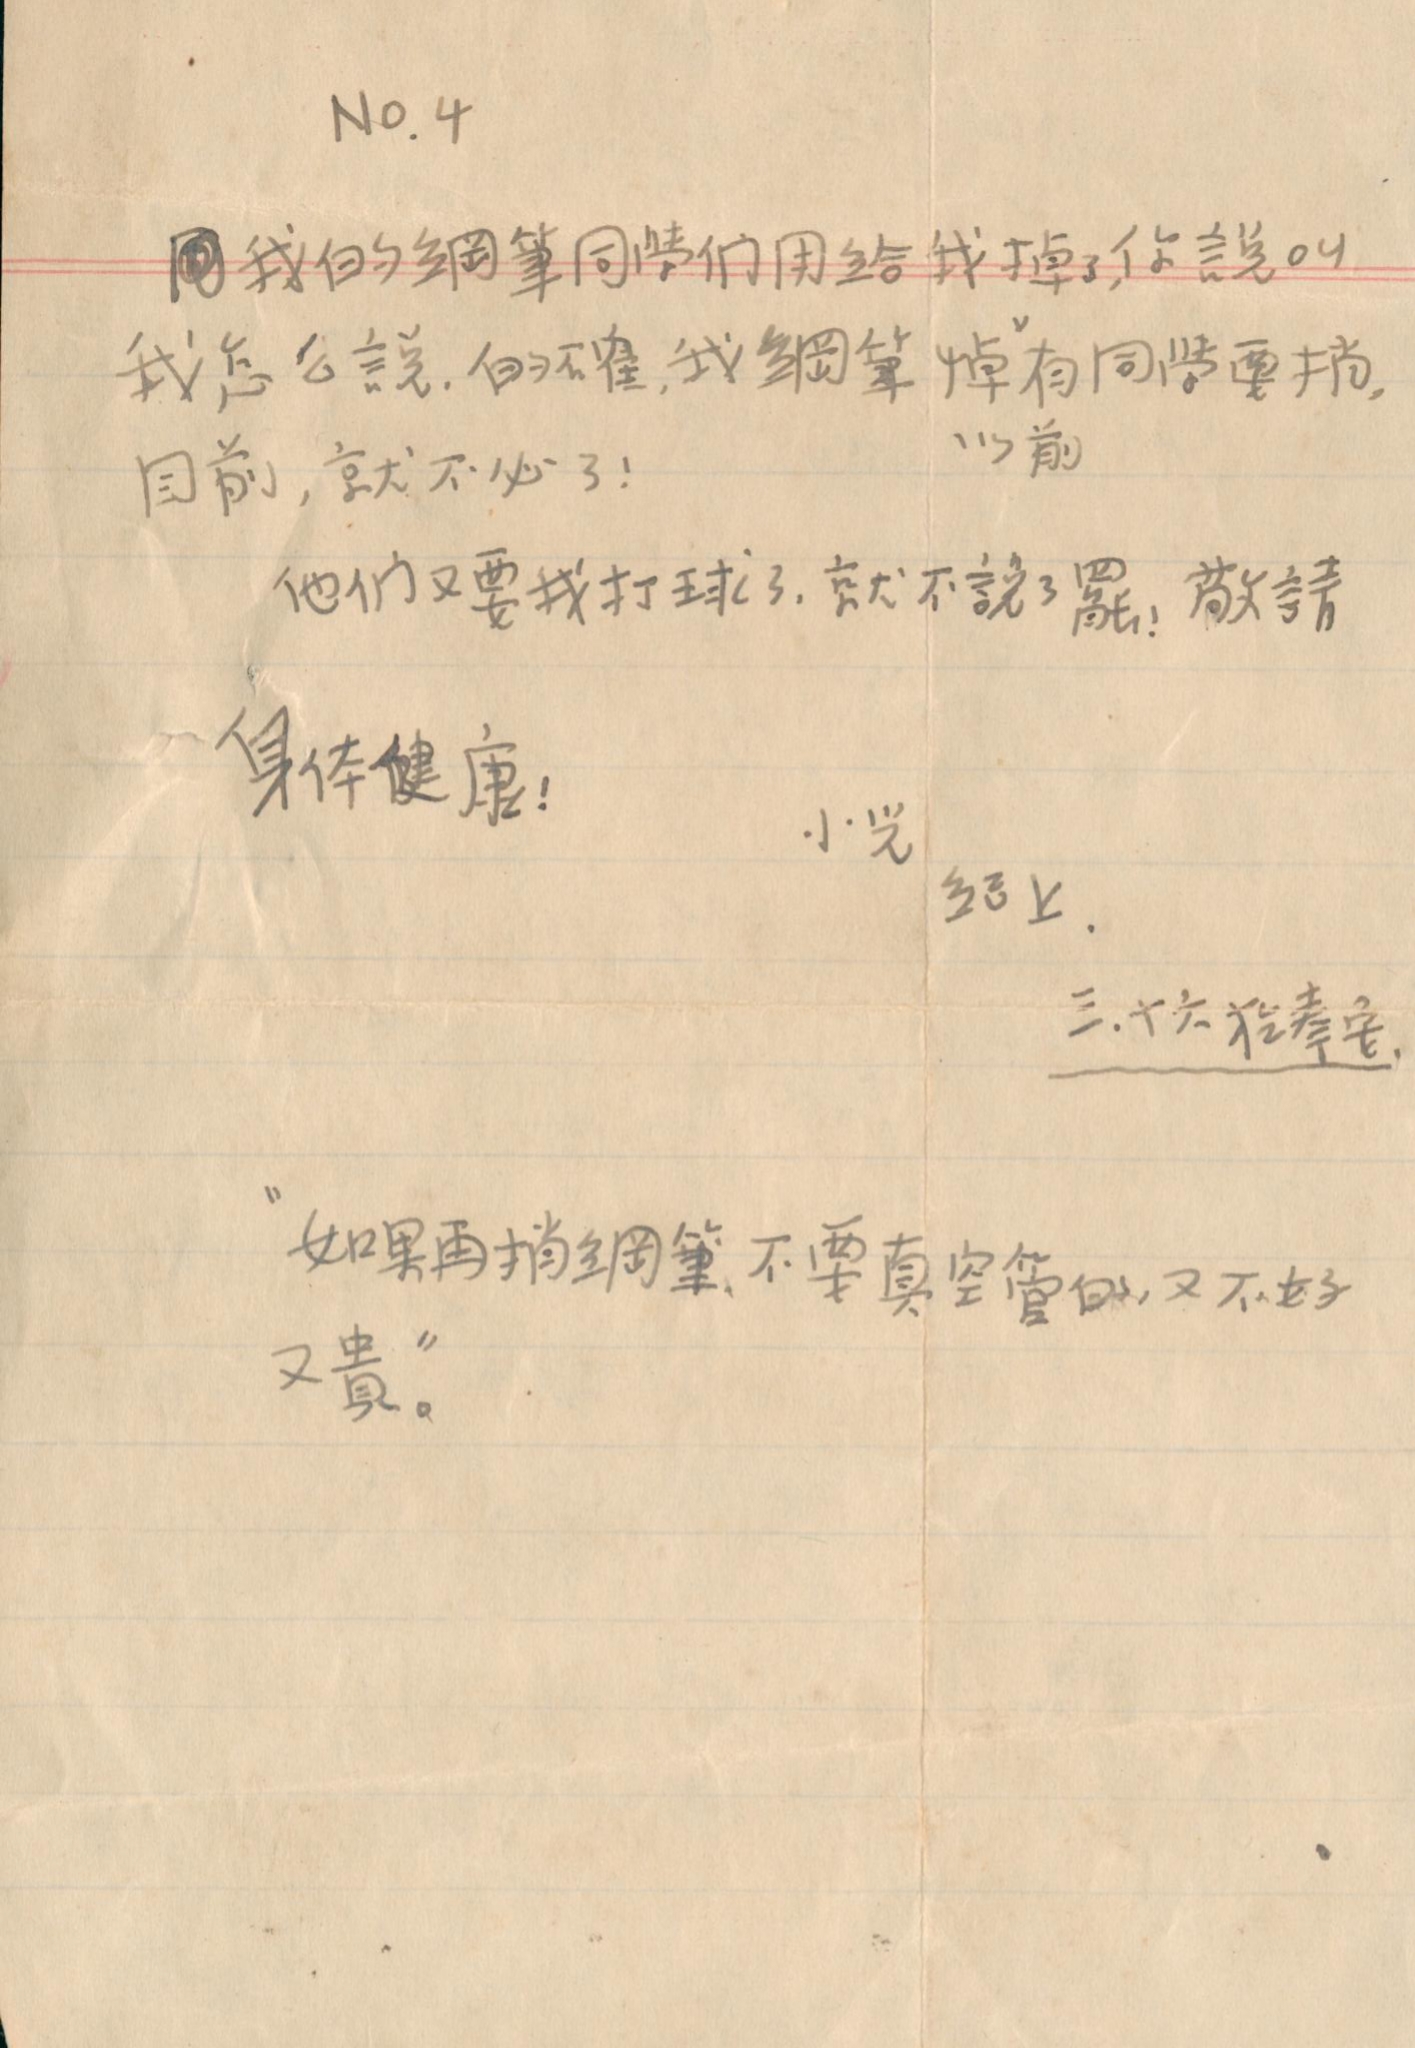 NO. 4
我的綱筆同學们用給我掉了,你説叫
我怎么説.的確,我綱筆悼有同學要捎,
以前
目前,就不必了!
他们又要我打球了.就不説了罷!敬請
身体健康!
小兒
紹上.
三.十六於奉宅.
"如果再捎綱筆,不要真空管的,又不好
又貴。"